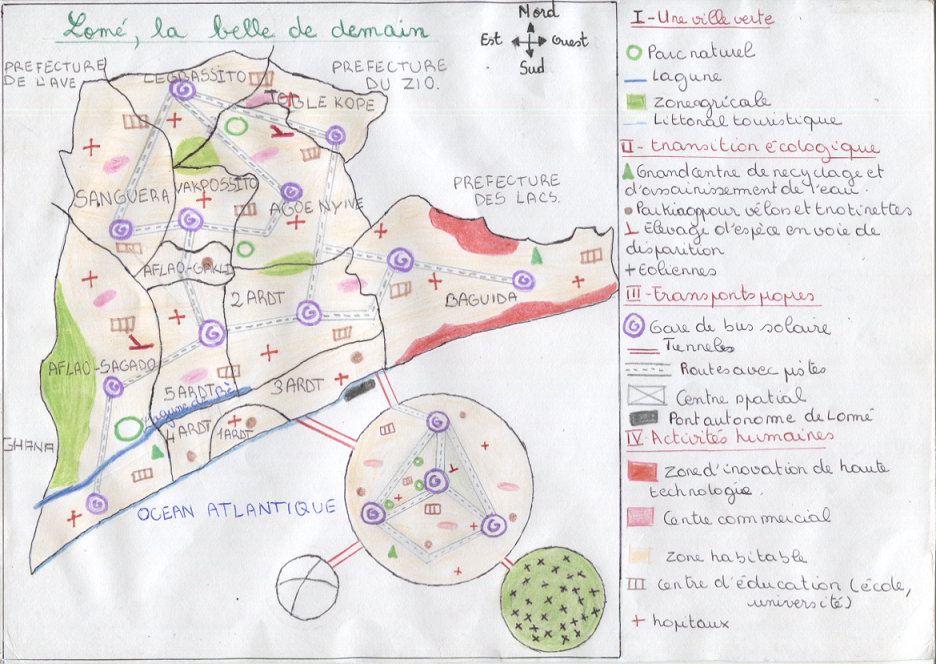 Lomé, la belle de demain
Nord
Est
Ouest
Sud
PREFECTURE
DE L'AVE
LEGBASSITO
PREFECTURE
DU ZIO.
TOGBLE KOPE
SANGUERA
VAKPOSSITO
AGOE NYIVE
PREFECTURE
DES LACS.
AFLAO-GAKLI
2 ARDT
BAGUIDA
AFLAO-SAGADO
5 ARDT
3 ARDT
Lagune de Bè
4 ARDT
1ARDT
GHANA
OCEAN ATLANTIQUE
I-Une ville verte
Parc naturel
Lagune
Zone agricale
Littonal touristique
II-transition écologique
Grand centre de recyclage et
d'assainissement de l'eau.
Parking pour vélos et trotinettes
Elevage d'espèce en voie de
disparition
Eoliennes
III-Transports propres
Gare de bus solaire
Tunnels
Routes avec pistes
Centre spatial
Pont autonome de Lomé
IV-Activités humaines
Zone d'inovation de haute
technologie.
Centre commercial
Zone habitable
centre d'éducation (école,
université)
hopitaux